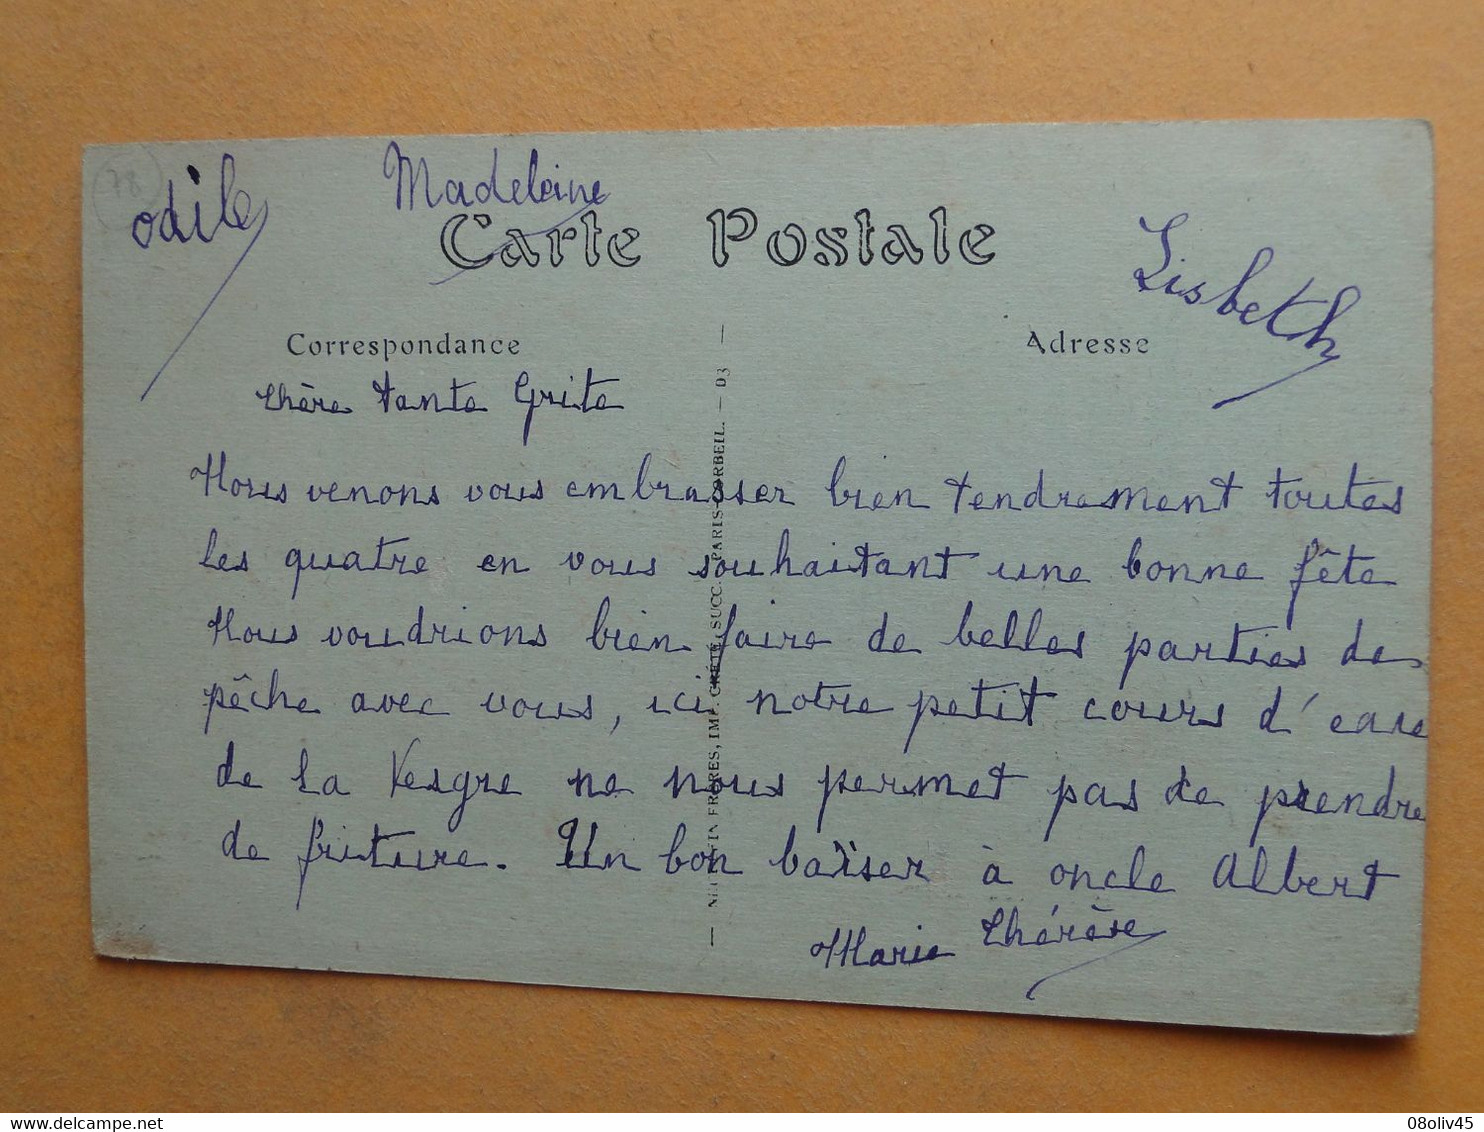 78
odile
Madeleine
Carte Postale
Lisbeth
Correspondance
Adresse
Chère tante Grite
Nous venons vous embrasser bien tendrement toutes
les quatre en vous souhaitant une bonne fête
Nous voudrions bien faire de belles parties de
pêche avec vous, ici notre petit cours d'eau
de la Vesgre ne nous permet pas de prendre
de friture. Un bon baiser à oncle Albert
Marie Thérèse
FRÈRES, IMP. CRÉTÉ, SUCC. PARIS-CORBEIL. — D3 —
08oliv45